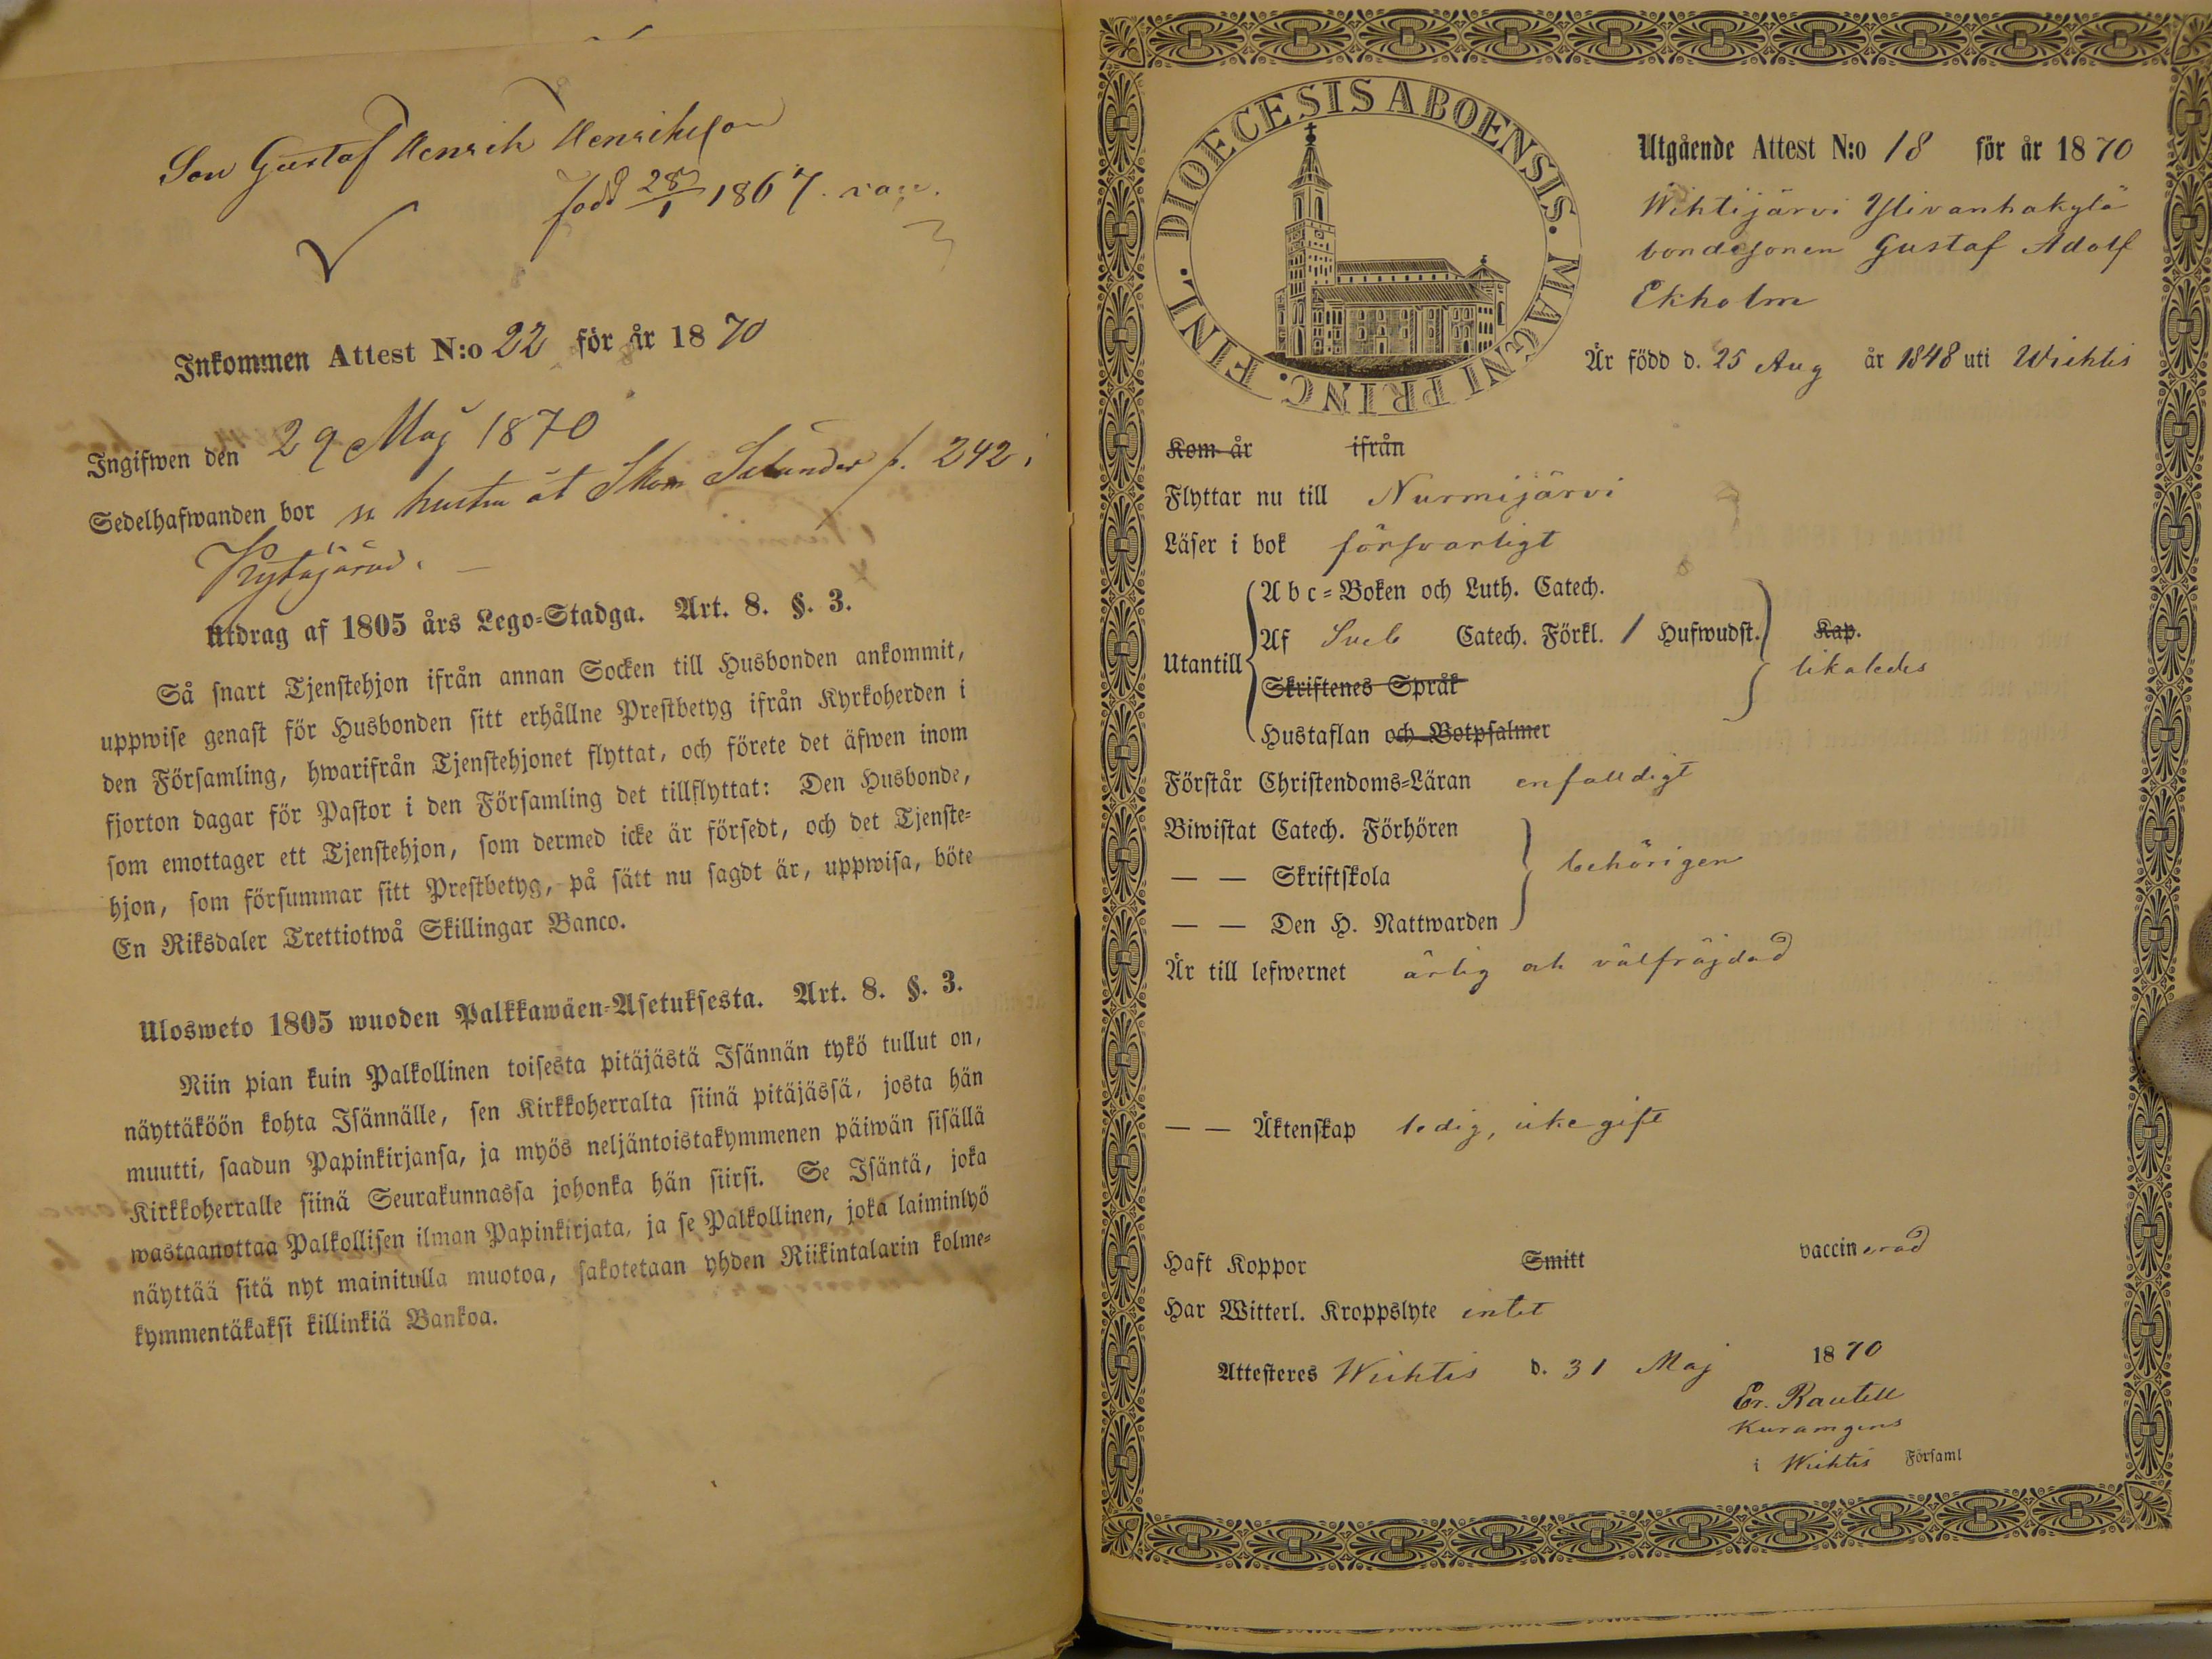 Son Gustaf Henrik Henriksson
född 28/1 1867. vac.
Inkommen Attest N:o 22 för år 1870
Ingifwen den 29 Maj 1870
Sedelhafwanden bor hustru åt Skom Selander p. 242
Kytäjärvi.
Utdrag af 1805 års Lego-Stadga. Art. 8. §. 3.
Så snart Tjenstehjon ifrån annan Socken till Husbonden ankommit,
uppwise genast för Husbonden sitt erhållne Prestbetyg ifrån Kyrkoherden i
den Församling, hwarifrån Tjenstehjonet flyttat, och förete det äfwen inom
fjorton dagar för Pastor i den Församling det tillflyttat: Den Husbonde,
som emottager ett Tjenstehjon, som dermed icke är försedt, och det Tjenste-
hjon, som försummar sitt Prestbetyg, på sätt nu sagdt är, uppwisa, böte
En Riksdaler Trettiotwå Skillingar Banco.
Ulosweto 1805 wuoden Palkkawäen-Asetuksesta. Art. 8. §. 3.
Niin pian kuin Palkollinen toisesta pitäjästä Isännän tykö tullut on,
näyttäköön kohta Isännälle, sen Kirkkoherralta siinä pitäjässä, josta hän
muutti, saadun Papinkirjansa, ja myös neljäntoistakymmenen päiwän sisällä
Kirkkoherralle siinä Seurakunnassa johonka hän siirsi. Se Isäntä, joka
wastaanottaa Palkollisen ilman Papinkirjata, ja se Palkollinen, joka laiminlyö
näyttää sitä nyt mainitulla muotoa, sakotetaan yhden Riikintalarin kolme-
kymmentäkaksi killinkiä Bankoa.
DIOECESIS ABOENSIS. MAGNI PRINC. FINL.
Utgående Attest N:o 18 för år 1870
Wihtijärvi Ylivanhakylä
bondesonen Gustaf Adolf
Ekholm
Är född d. 25 Aug år 1848 uti Wichtis
Kom år ifrån
Flyttar nu till Nurmijärvi
Läser i bok försvarligt
Utantill
Abc-Boken och Luth. Catech.
Af Sveb Catech. Förkl. / Hufwudst. Kap.
likaledes
Skriftenes Språk
Hustaflan och Botpsalmer
Förstår Christendoms-Läran enfalldigt
Biwistat Catech. Förhören
— — Skriftskola behörigen
— — Den H. Nattwarden
Är till lefwernet ärlig och välfräjdad
— — Äktenskap ledig, icke gift
Haft Koppor Smitt vaccinerad
Har Witterl. Kroppslyte intet
Attesteres Wichtis d. 31 Maj 1870
Er. Rautell
i Wichtis Församl